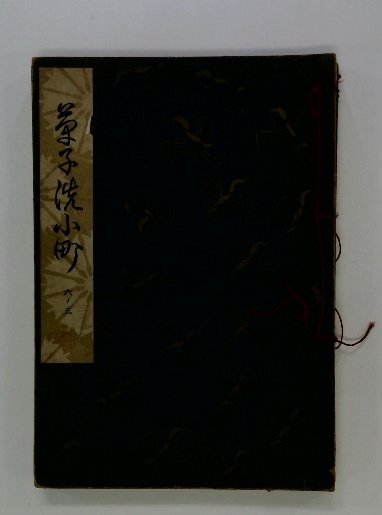 草子洗小町
六ノ三